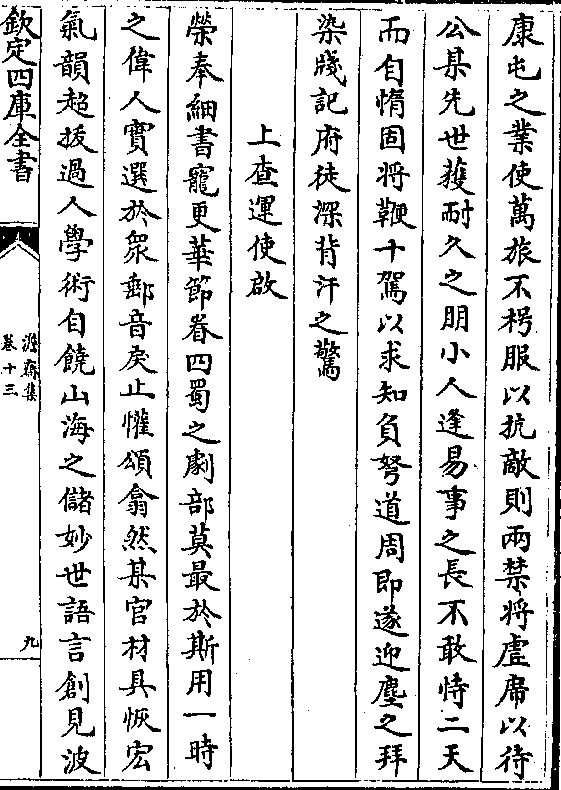 康屯之業使萬旅不枵服以抗敵則兩禁將虛席以待
公某先世獲耐久之朋小人逢易事之長不敢恃二天
而自惰固將鞭十駕以求知負弩道周即遂迎塵之拜
染牋記府徒深背汗之驚
上查運使啟
榮奉細書寵更華節眷四蜀之劇部莫最於斯用一時
之偉人實選於衆郵音戾止懽頌翕然某官材具恢宏
氣韻超拔過人學術自饒山海之儲妙世語言創見波
欽定四庫全書
澹齋集
卷十三
九